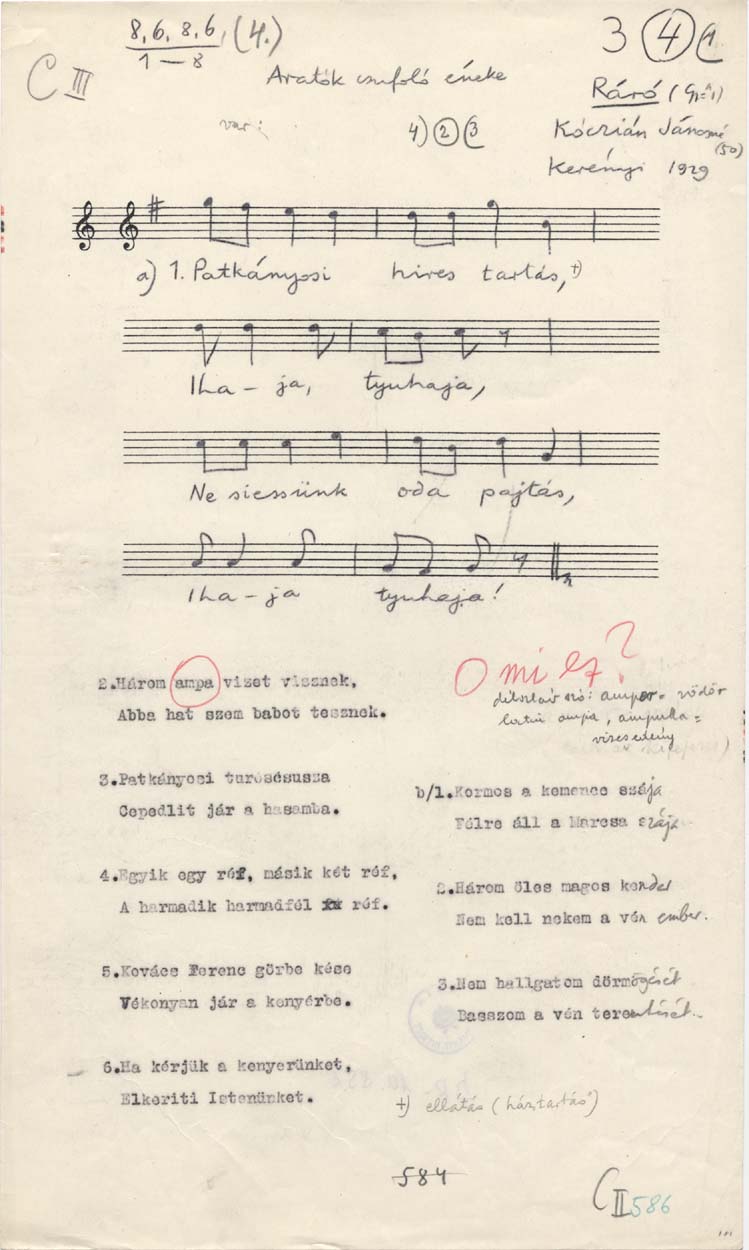 8,6,8,6, (4.)
1 — 8
3 4 (1
C III
Aratók csufoló éneke
Ráró (Győr m.)
var:
4) 2 (3
Kóczián Jánosné
(50)
Kerényi 1929
a) 1. Patkányosi hires tartás, +)
Iha - ja, tyuhaja,
Ne siessünk oda pajtás,
Iha - ja tyuhaja!
2.Három ampa vizet visznek,
Abba hat szem babot tesznek.
O mi ez?
délszláv szó: ampor = vödör
latin ampa, ampulla =
vizesedény
3.Patkányosi turóscsusza
Cepedlit jár a hasamba.
4.Egyik egy réf, másik két réf,
A harmadik harmadfél réf.
5.Kovács Ferenc görbe kése
Vékonyan jár a kenyérbe.
6.Ha kérjük a kenyerünket,
Elkeriti Istenünket.
b/1.Kormos a kemence szája
Félre áll a Marcsa szája
2.Három öles magos kender
Nem kell nekem a vén ember.
3.Nem hallgatom dörmögését
Basszom a vén teremtését.
+) ellátás (háztartás)
584
C II 586